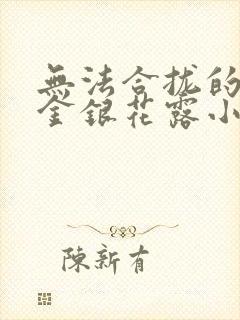 無法合拢的
金銀花露小
陳新有